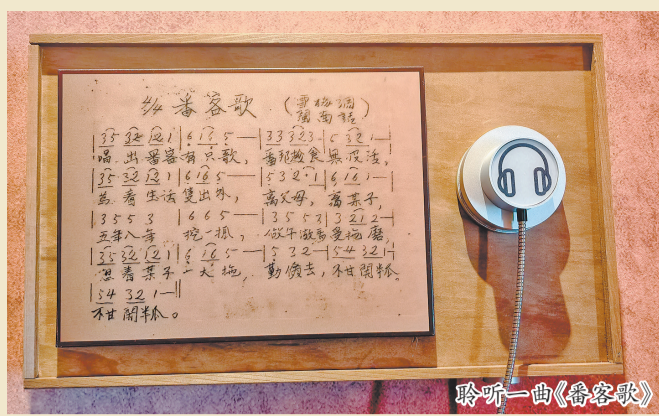 番客歌（雪梅調
閩南話）
3 5 3 2 1 2 1 | 6 1 6 5 — | 3 3 3 2 3 | 5 3 2 1 —
唱出番客有只歌，番邦趁食無快活，
3 5 3 2 1 2 1 | 6 1 6 5 — | 5 3 2 | 6 1 6 1 —
為着生活隻出外，離父母，離某子，
3 5 5 3 6 6 5 — | 3 5 5 3 | 3 2 1 2 —
五年八年 挖一擺，做牛做馬受拖磨，
3 5 3 2 1 2 1 | 6 1 6 5 — | 5 3 2 — | 5 4 3 2 1
想着某子一大拖，勤儉去，不甘開半瓜。
5 4 3 2 1 —
不甘開半瓜。
聆听一曲《番客歌》